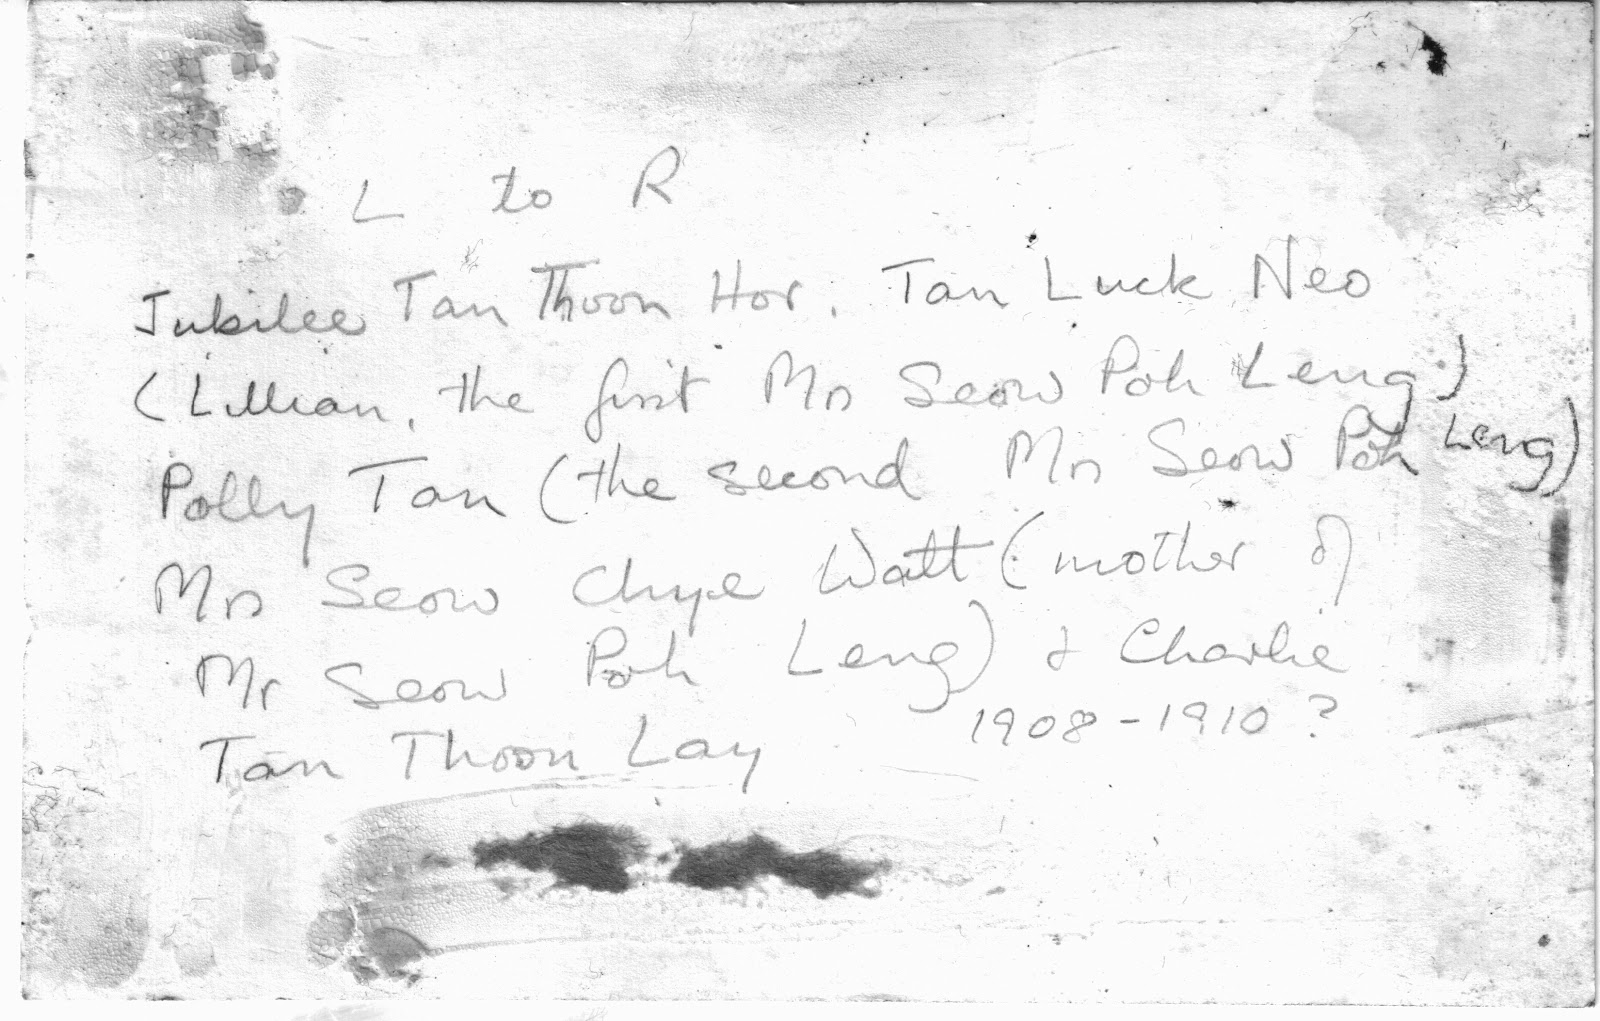 L to R
Jubilee Tan Thoon Hor, Tan Luck Neo
(Lillian, the first Mrs Seow Poh Leng)
Polly Tan (the second Mrs Seow Poh Leng)
Mrs Seow Chye Watt (mother of
Mr Seow Poh Leng) & Charlie
Tan Thoon Lay 1908-1910?